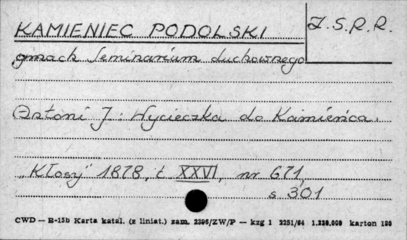 KAMIENIEC PODOLSKI
Z.S.R.R.
gmach Seminarium duchownego
Antoni J: Wycieczka do Kamieńca.
„Kłosy" 1878, t. XXVI, nr 671,
s 301
CWD — B-15b Karta katal. (z liniat.) zam. 2396/ZW/P — kzg 1 3251/64 1.220.000 karton 190